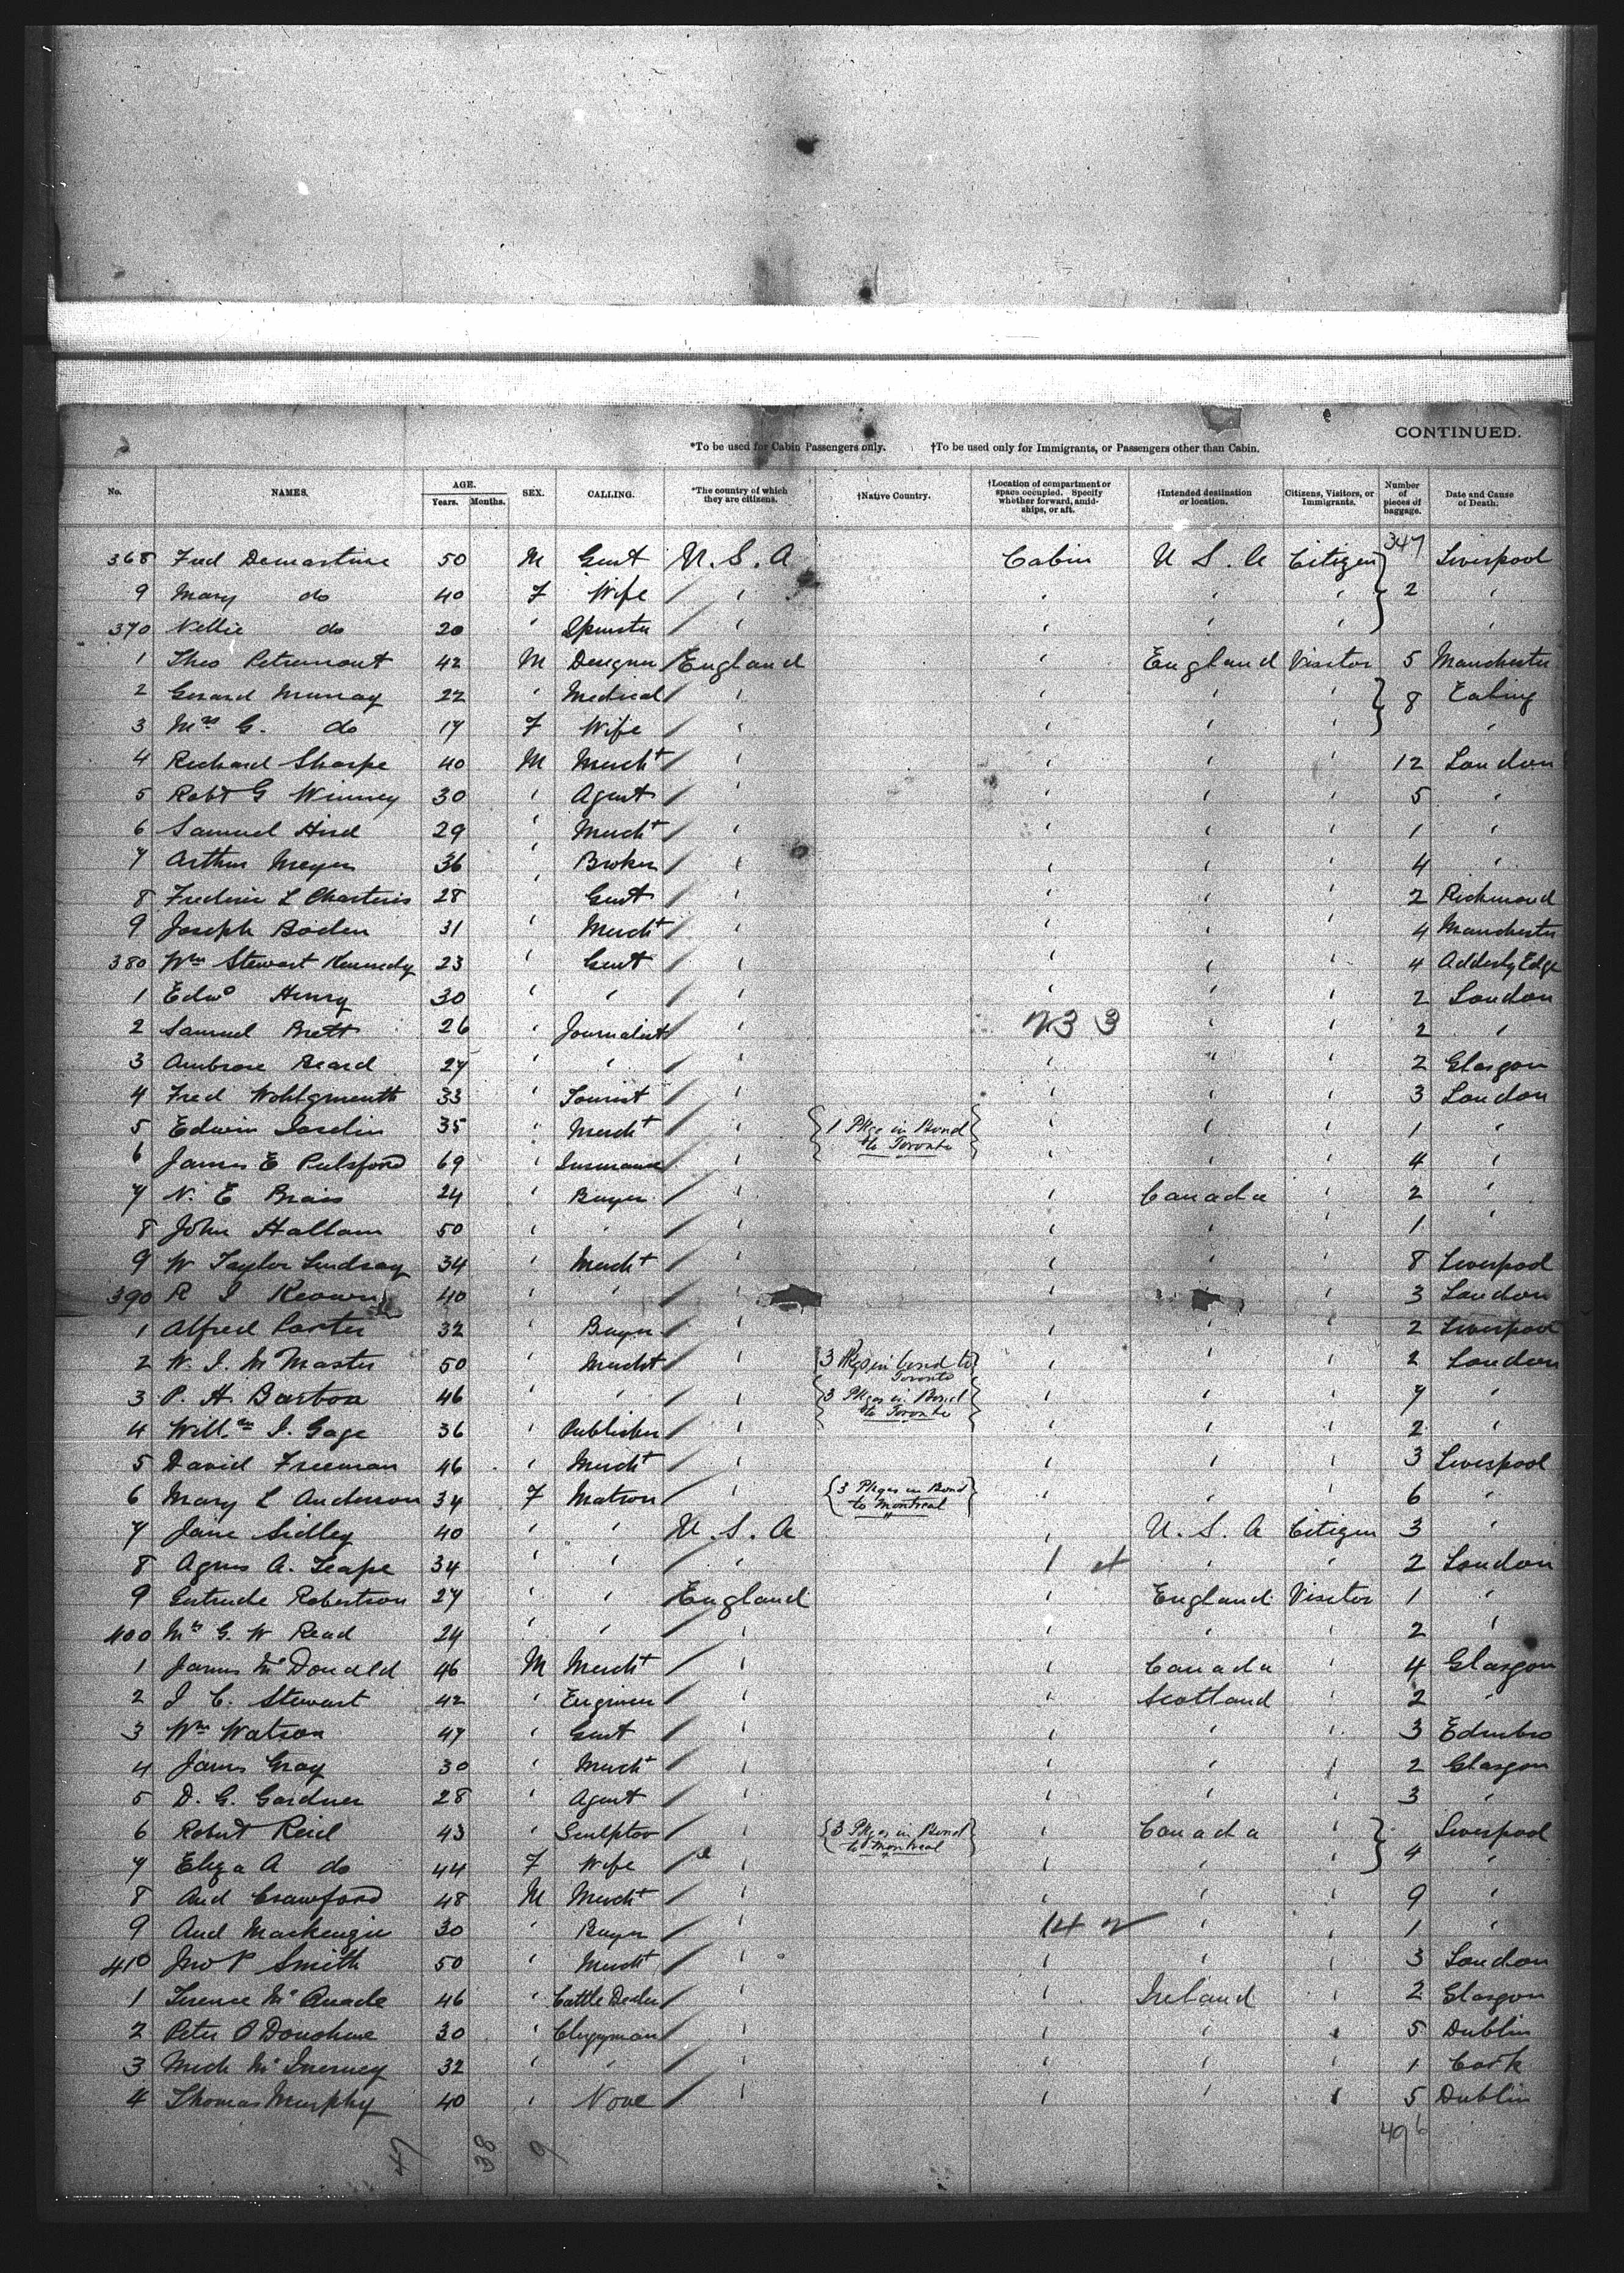 CONTINUED.
*To be used for Cabin Passengers only. †To be used only for Immigrants, or Passengers other than Cabin.
No. NAMES. AGE. Years. Months. SEX. CALLING. *The country of which they are citizens. †Native Country. †Location of compartment or space occupied. Specify whether forward, amid-ships, or aft. †Intended destination or location. Citizens, Visitors, or Immigrants. Number of pieces of baggage. Date and Cause of Death.
347
368 Fred Demartine 50 M Gent U.S.A Cabin U S. A Citizen Liverpool
9 Mary do 40 F Wife ' ' ' ' 2 '
370 Nellie do 20 ' Spinster ' ' ' ' '
1 Theo Petremont 42 M Designer England ' England Visitor 5 Manchester
2 Gerard Murray 22 ' Medical ' ' ' ' 8 Ealing
3 Mrs G. do 17 F Wife ' ' ' ' '
4 Richard Sharpe 40 M Mercht ' ' ' ' 12 London
5 Robt G Winney 30 ' Agent ' ' ' ' 5 '
6 Samuel Hird 29 ' Mercht ' ' ' ' 1 '
7 Arthur Meyer 36 ' Broker ' ' ' ' 4 '
8 Frederic L Charteris 28 ' Gent ' ' ' ' 2 Richmond
9 Joseph Boden 31 ' Mercht ' ' ' ' 4 Manchester
380 Wm Stewart Kennedy 23 ' Gent ' ' ' ' 4 Adderly Edge
1 Edwd Henry 30 ' ' ' ' ' ' 2 London
2 Samuel Brett 26 ' Journalist ' 23 3 ' ' 2 '
3 Ambrose Beard 27 ' ' ' ' " ' 2 Glasgow
4 Fred Wohlgmenth 33 ' Tourist ' ' ' ' 3 London
5 Edwin Joselin 35 ' Mercht ' 1 Pkge in Bond to Toronto ' ' ' 1 '
6 James E Pulsford 69 ' Insurance ' ' ' ' 4 '
7 N. E Brais 24 ' Buyer ' ' Canada ' 2 '
8 John Hallam 50 ' ' ' ' ' ' 1 '
9 W Taylor Lindsay 34 ' Mercht ' ' ' ' 8 Liverpool
390 R I Keown 40 ' ' ' ' ' 3 London
1 Alfred Porter 32 ' Buyer ' ' ' ' 2 Liverpool
2 W. J. McMaster 50 ' Mercht ' 3 Pkgs in bond to Toronto ' ' ' 2 London
3 P. H. Barton 46 ' ' ' 3 Pkges in Bond to Toronto ' ' ' 7 '
4 Willm J. Gage 36 ' Publisher ' ' ' ' 2 '
5 David Freeman 46 ' Mercht ' ' ' ' 3 Liverpool
6 Mary L Anderson 34 F Matron ' 3 Pkges in Bond to Montreal ' ' ' 6 '
7 Jane Sidley 40 ' ' U. S. A ' U. S. A Citizen 3 '
8 Agnes A. Leape 34 ' ' ' 1 ' ' 2 London
9 Gertrude Robertson 27 ' ' England ' England Visitor 1 '
400 Mrs G. W Read 24 ' ' ' ' ' ' 2 '
1 James McDonald 46 M Mercht ' ' Canada ' 4 Glasgow
2 J C. Stewart 42 ' Engineer ' ' Scotland ' 2 '
3 Wm Watson 47 ' Gent ' ' ' ' 3 Edinbro
4 James Gray 30 ' Mercht ' ' ' ' 2 Glasgow
5 D. G. Gardner 28 ' Agent ' ' ' ' 3 '
6 Robert Reid 43 ' Sculptor ' 3 Pkges in Bond to Montreal ' Canada ' Liverpool
7 Eliza A do 44 F Wife ' ' ' ' 4 '
8 And Crawford 48 M Mercht ' ' ' ' 9 '
9 And Mackenzie 30 ' Buyer ' 14 2 ' ' 1 '
410 Jno P Smith 50 ' Mercht ' ' ' ' 3 London
1 Terence McQuade 46 ' Cattle Dealer ' ' Ireland ' 2 Glasgow
2 Peter O Donohue 30 ' Clergyman ' ' ' ' 5 Dublin
3 Mich McInerney 32 ' ' ' ' ' ' 1 Cork
4 Thomas Murphy 40 ' None ' ' ' ' 5 Dublin
47 38 9 496